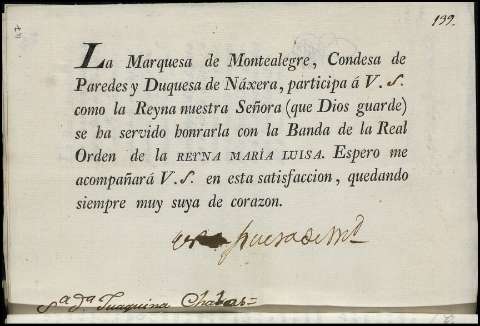 139.
La Marquesa de Montealegre, Condesa de
Paredes y Duquesa de Náxera, participa á V. S.
como la Reyna nuestra Señora (que Dios guarde)
se ha servido honrarla con la Banda de la Real
Orden de la REYNA MARÍA LUISA. Espero me
acompañará V. S. en esta satisfaccion, quedando
siempre muy suya de corazon.
Sª Dª Juaquina